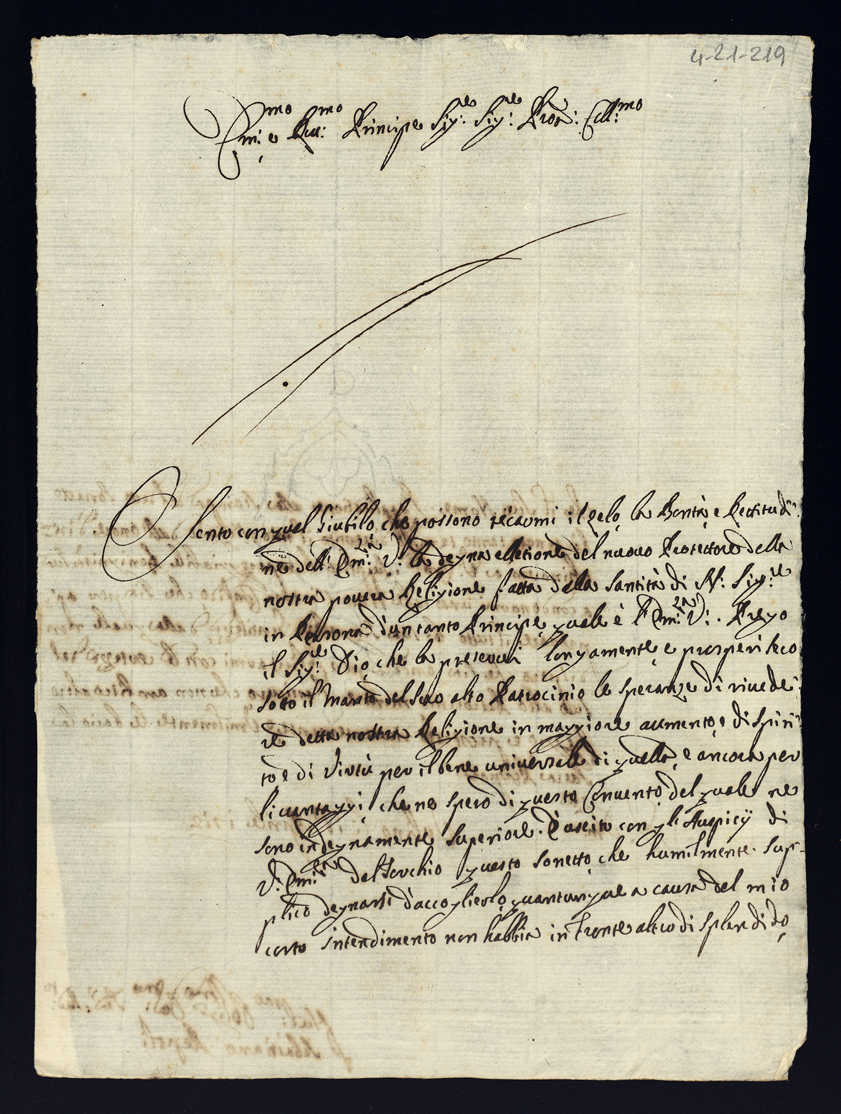 4-21-219
Em:mo e Rev:mo Principe Sig:re Sig:re Pror: Coll:mo
Sento con quel Giubilo, che possono recarmi il zelo, la Bontà, e Rettitudi:
ne dell'Em:za V:a la degna elletione del nuovo Protectore della
nostra povera Religione fatta dalla Santità di N: Sig:re
in Persona d'un tanto Principe, quale è l'Em:za V:. Prego
il Sig:re Dio che la preservi longamente, e prosperi seco
sotto il Manto del Suo alto Patrocinio le speranze di rivede:
re detta nostra Religione in maggiore aumento, e di Spiri:
to e di Virtù per il bene universale di quella, e ancora per
li vantaggi, che ne spero di questo Convento, del quale ne
sono indegnamente Superiore. È uscito con gli Auspicij di
V: Em:za dal Torchio questo Sonetto, che humilmente sup-
plico degnarsi d'accoglierlo, quantunque a causa del mio
corto intendimento non habbia in Fronte altro di Splendido,